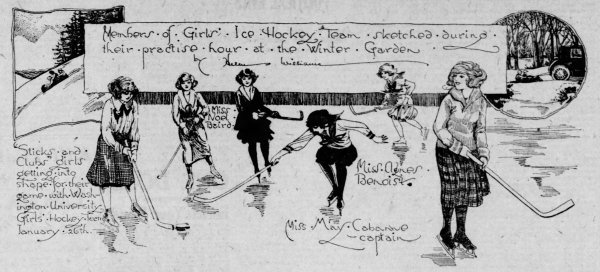 Members of Girls' Ice Hockey Team sketched during
their practise hour at the Winter Garden
by Helen Williams
Miss
Noel
Baird.
Sticks and
Clubs girls
getting into
shape for their
game with Wash-
ington University
Girls' Hockey team
January 26th.
Miss Agnes
Benoist.
Miss May Cabanne
captain